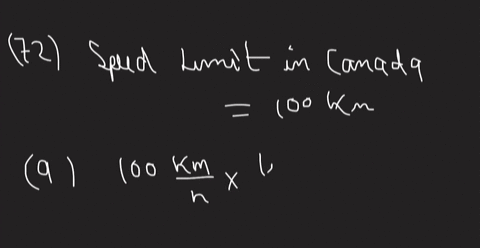 (72) Speed Limit in Canada
= 100 Km
(a) 100 Km/h x